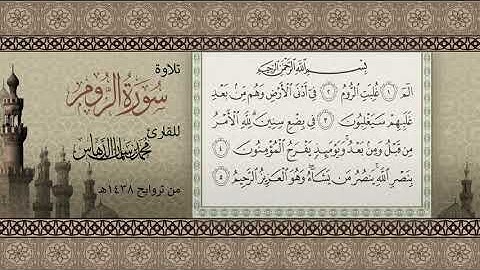 تلاوة
سورة الروم
للقارئ
من تروايح ١٤٣٨هـ
بِسْمِ اللَّهِ الرَّحْمَٰنِ الرَّحِيمِ
الٓمٓ ١ غُلِبَتِ الرُّومُ ٢ فِي أَدْنَى الْأَرْضِ وَهُم مِّنۢ بَعْدِ
غَلَبِهِمْ سَيَغْلِبُونَ ٣ فِي بِضْعِ سِنِينَ ۗ لِلَّهِ الْأَمْرُ
مِن قَبْلُ وَمِنۢ بَعْدُ ۚ وَيَوْمَئِذٍ يَفْرَحُ الْمُؤْمِنُونَ ٤
بِنَصْرِ اللَّهِ ۚ يَنصُرُ مَن يَشَاءُ ۖ وَهُوَ الْعَزِيزُ الرَّحِيمُ ٥